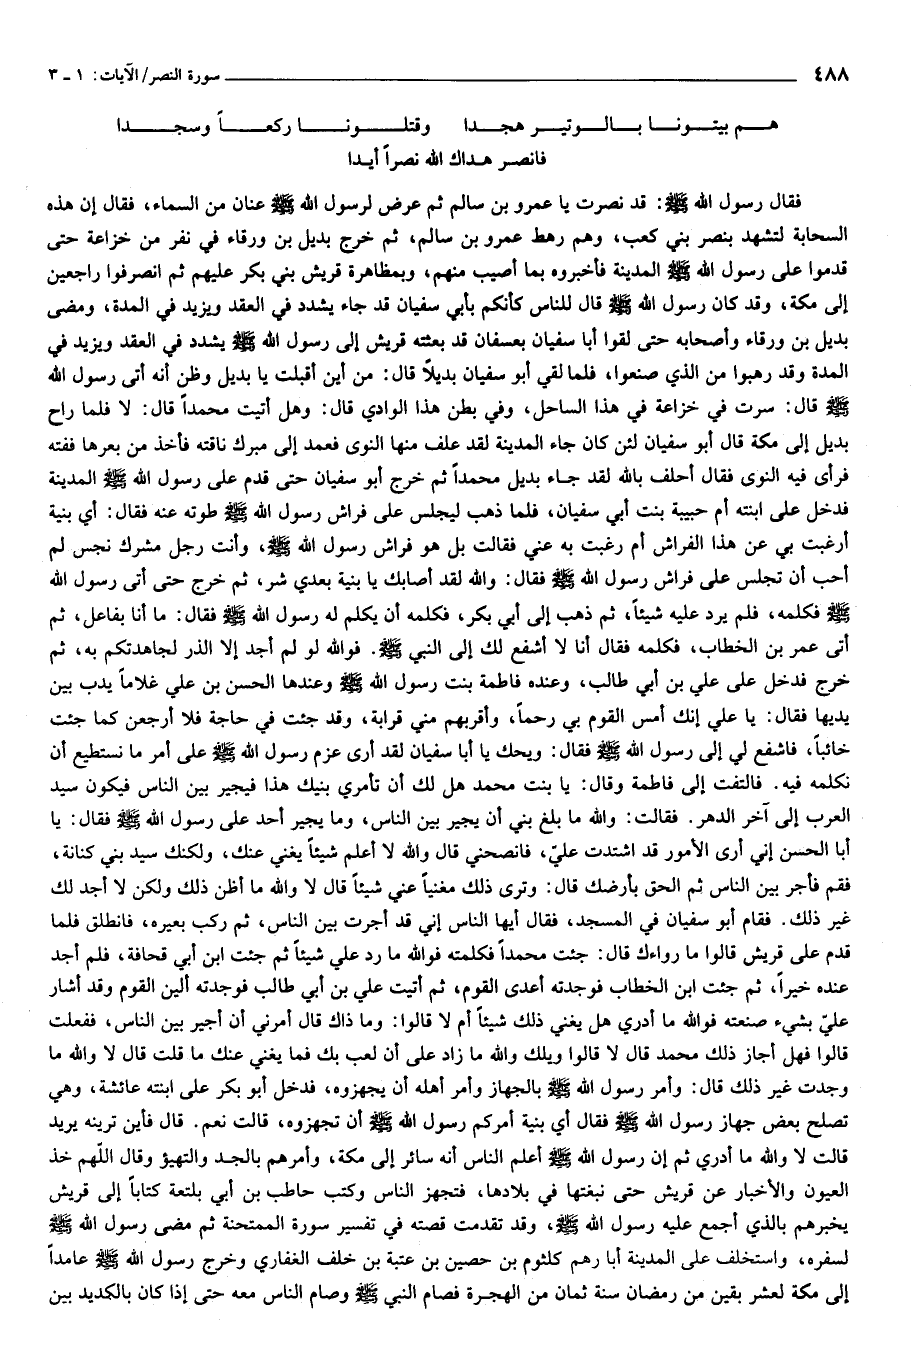 ٤٨٨ سورة النصر/الآيات: ١ ـ ٣
هــم بيتـونـا بـالـوتيـر هجـدا وقتلـونـا ركعـاً وسجـدا
فانصر هداك الله نصراً أيدا
فقال رسول الله ﷺ: قد نصرت يا عمرو بن سالم ثم عرض لرسول الله ﷺ عنان من السماء، فقال إن هذه
السحابة لتشهد بنصر بني كعب، وهم رهط عمرو بن سالم، ثم خرج بديل بن ورقاء في نفر من خزاعة حتى
قدموا على رسول الله ﷺ المدينة فأخبروه بما أصيب منهم، وبمظاهرة قريش بني بكر عليهم ثم انصرفوا راجعين
إلى مكة، وقد كان رسول الله ﷺ قال للناس كأنكم بأبي سفيان قد جاء يشدد في العقد ويزيد في المدة، ومضى
بديل بن ورقاء وأصحابه حتى لقوا أبا سفيان بعسفان قد بعثته قريش إلى رسول الله ﷺ يشدد في العقد ويزيد في
المدة وقد رهبوا من الذي صنعوا، فلما لقي أبو سفيان بديلاً قال: من أين أقبلت يا بديل وظن أنه أتى رسول الله
ﷺ قال: سرت في خزاعة في هذا الساحل، وفي بطن هذا الوادي قال: وهل أتيت محمداً قال: لا فلما راح
بديل إلى مكة قال أبو سفيان لئن كان جاء المدينة لقد علف منها النوى فعمد إلى مبرك ناقته فأخذ من بعرها ففته
فرأى فيه النوى فقال أحلف بالله لقد جاء بديل محمداً ثم خرج أبو سفيان حتى قدم على رسول الله ﷺ المدينة
فدخل على ابنته أم حبيبة بنت أبي سفيان، فلما ذهب ليجلس على فراش رسول الله ﷺ طوته عنه فقال: أي بنية
أرغبت بي عن هذا الفراش أم رغبت به عني فقالت بل هو فراش رسول الله ﷺ، وأنت رجل مشرك نجس لم
أحب أن تجلس على فراش رسول الله ﷺ فقال: والله لقد أصابك يا بنية بعدي شر، ثم خرج حتى أتى رسول الله
ﷺ فكلمه، فلم يرد عليه شيئاً، ثم ذهب إلى أبي بكر، فكلمه أن يكلم له رسول الله ﷺ فقال: ما أنا بفاعل، ثم
أتى عمر بن الخطاب، فكلمه فقال أنا لا أشفع لك إلى النبي ﷺ. فوالله لو لم أجد إلا الذر لجاهدتكم به، ثم
خرج فدخل على علي بن أبي طالب، وعنده فاطمة بنت رسول الله ﷺ وعندها الحسن بن علي غلاماً يدب بين
يديها فقال: يا علي إنك أمس القوم بي رحماً، وأقربهم مني قرابة، وقد جئت في حاجة فلا أرجعن كما جئت
خائباً، فاشفع لي إلى رسول الله ﷺ فقال: ويحك يا أبا سفيان لقد أرى عزم رسول الله ﷺ على أمر ما نستطيع أن
نكلمه فيه. فالتفت إلى فاطمة وقال: يا بنت محمد هل لك أن تأمري بنيك هذا فيجير بين الناس فيكون سيد
العرب إلى آخر الدهر. فقالت: والله ما بلغ بني أن يجير بين الناس، وما يجير أحد على رسول الله ﷺ فقال: يا
أبا الحسن إني أرى الأمور قد اشتدت عليّ، فانصحني قال والله لا أعلم شيئاً يغني عنك، ولكنك سيد بني كنانة،
فقم فأجر بين الناس ثم الحق بأرضك قال: وترى ذلك مغنياً عني شيئاً قال لا والله ما أظن ذلك ولكن لا أجد لك
غير ذلك. فقام أبو سفيان في المسجد، فقال أيها الناس إني قد أجرت بين الناس، ثم ركب بعيره، فانطلق فلما
قدم على قريش قالوا ما رواءك قال: جئت محمداً فكلمته فوالله ما رد علي شيئاً ثم جئت ابن أبي قحافة، فلم أجد
عنده خيراً، ثم جئت ابن الخطاب فوجدته أعدى القوم، ثم أتيت علي بن أبي طالب فوجدته ألين القوم وقد أشار
عليّ بشيء صنعته فوالله ما أدري هل يغني ذلك شيئاً أم لا قالوا: وما ذاك قال أمرني أن أجير بين الناس، ففعلت
قالوا فهل أجاز ذلك محمد قال لا قالوا ويلك والله ما زاد على أن لعب بك فما يغني عنك ما قلت قال لا والله ما
وجدت غير ذلك قال: وأمر رسول الله ﷺ بالجهاز وأمر أهله أن يجهزوه، فدخل أبو بكر على ابنته عائشة، وهي
تصلح بعض جهاز رسول الله ﷺ فقال أي بنية أمركم رسول الله ﷺ أن تجهزوه، قالت نعم. قال فأين ترينه يريد
قالت لا والله ما أدري ثم إن رسول الله ﷺ أعلم الناس أنه سائر إلى مكة، وأمرهم بالجد والتهيؤ وقال اللّهم خذ
العيون والأخبار عن قريش حتى نبغتها في بلادها، فتجهز الناس وكتب حاطب بن أبي بلتعة كتاباً إلى قريش
يخبرهم بالذي أجمع عليه رسول الله ﷺ، وقد تقدمت قصته في تفسير سورة الممتحنة ثم مضى رسول الله ﷺ
لسفره، واستخلف على المدينة أبا رهم كلثوم بن حصين بن عتبة بن خلف الغفاري وخرج رسول الله ﷺ عامداً
إلى مكة لعشر بقين من رمضان سنة ثمان من الهجرة فصام النبي ﷺ وصام الناس معه حتى إذا كان بالكديد بين